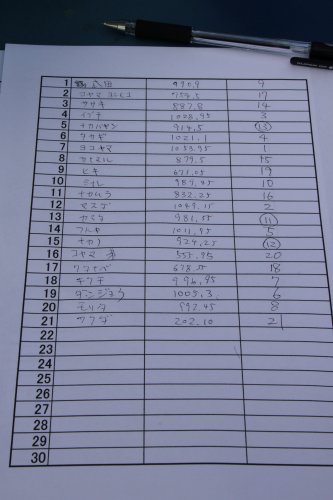 1 武田 990.9 9
2 コヤマヨシヒコ 754.5 17
3 ササキ 887.8 14
4 イブチ 1028.95 3
5 ナカバヤシ 914.5 13
6 1021.1 4
7 ヨコヤマ 1053.95 1
8 カナマル 879.5 15
9 ヒキ 671.05 19
10 989.45 10
11 ナカムラ 832.25 16
12 マスダ 1049.15 2
13 カマダ 981.55 11
14 フルキ 1011.95 5
15 ナカノ 924.25 12
16 コヤマ 555.95 20
17 18
18 キクチ 996.95 7
19 ダンジョウ 1003.3 6
20 モリタ 992.45 8
21 202.10 21
22
23
24
25
26
27
28
29
30